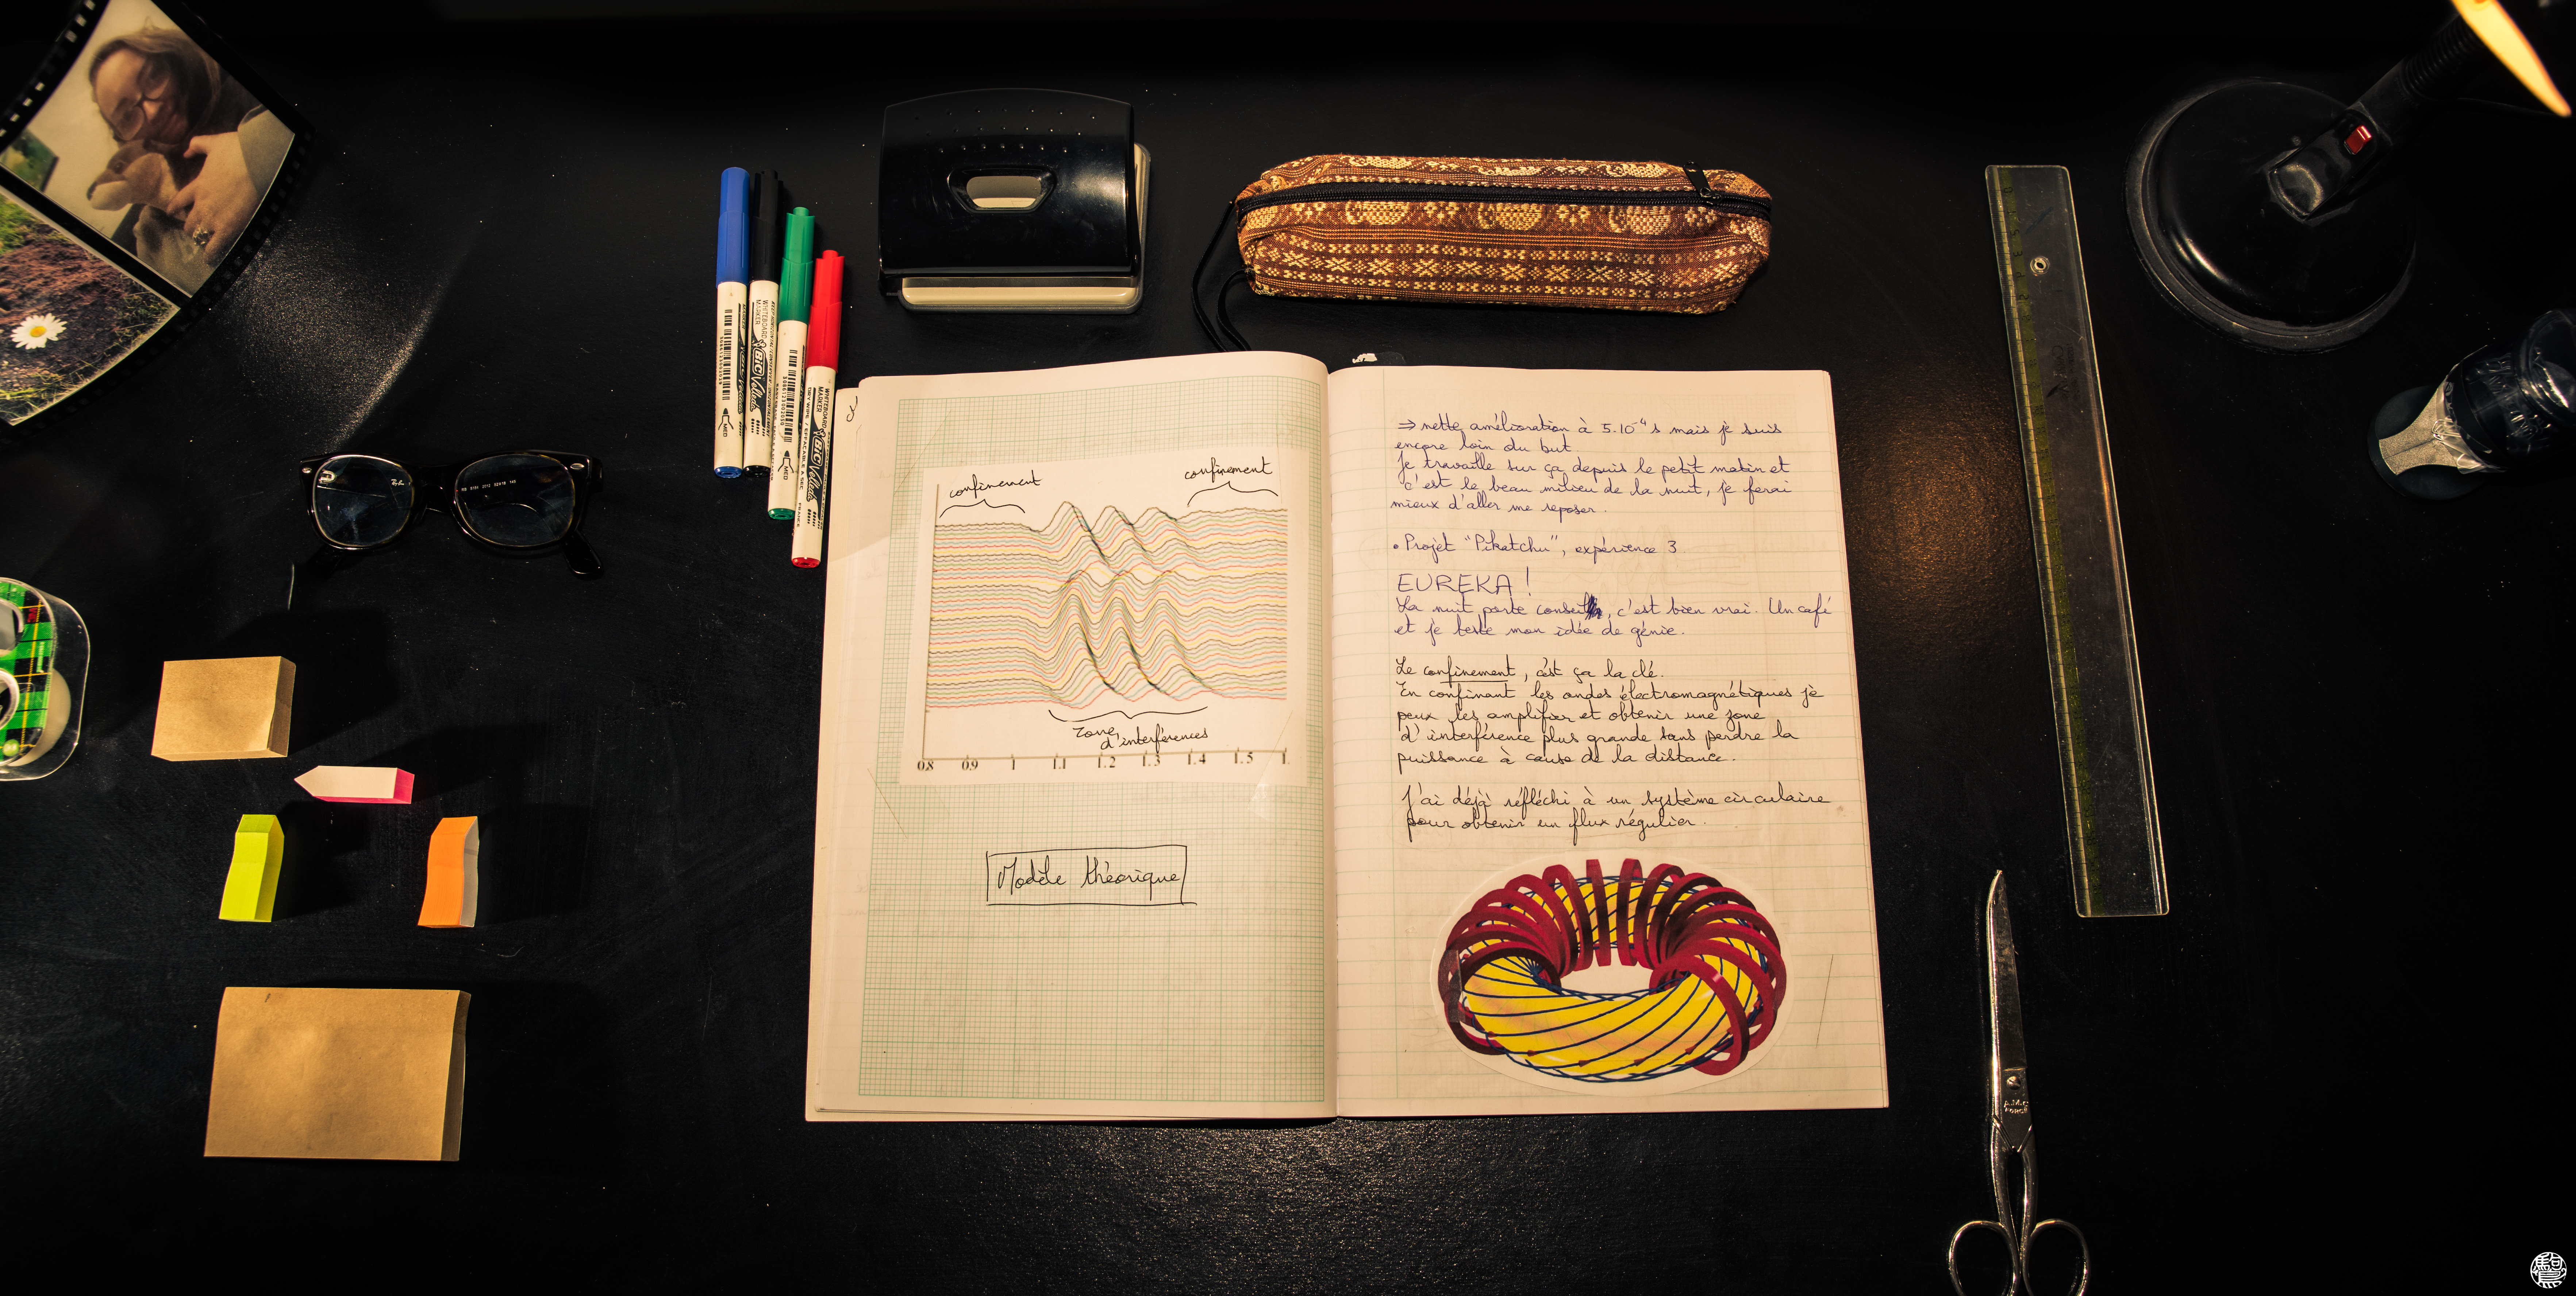 WHITEBOARD MARKER
BIC Velleda
MED
WHITEBOARD MARKER
BIC Velleda
MED
Ray-Ban
confinement
confinement
Zone
d'interférences
0.8 0.9 1 1.1 1.2 1.3 1.4 1.5 1.
Modèle théorique
⇒ nette amélioration à 5.10⁻⁴ s mais je suis
encore loin du but
Je travaille sur ça depuis le petit matin et
c'est le beau milieu de la nuit, je ferai
mieux d'aller me reposer.
• Projet "Pikatchu", expérience 3
EUREKA !
La nuit porte conseil, c'est bien vrai. Un café
et je teste mon idée de génie.
Le confinement, c'est ça la clé.
En confinant les ondes électromagnétiques je
peux les amplifier et obtenir une zone
d'interférence plus grande sans perdre la
puissance à cause de la distance.
J'ai déjà réfléchi à un système circulaire
pour obtenir un flux régulier.